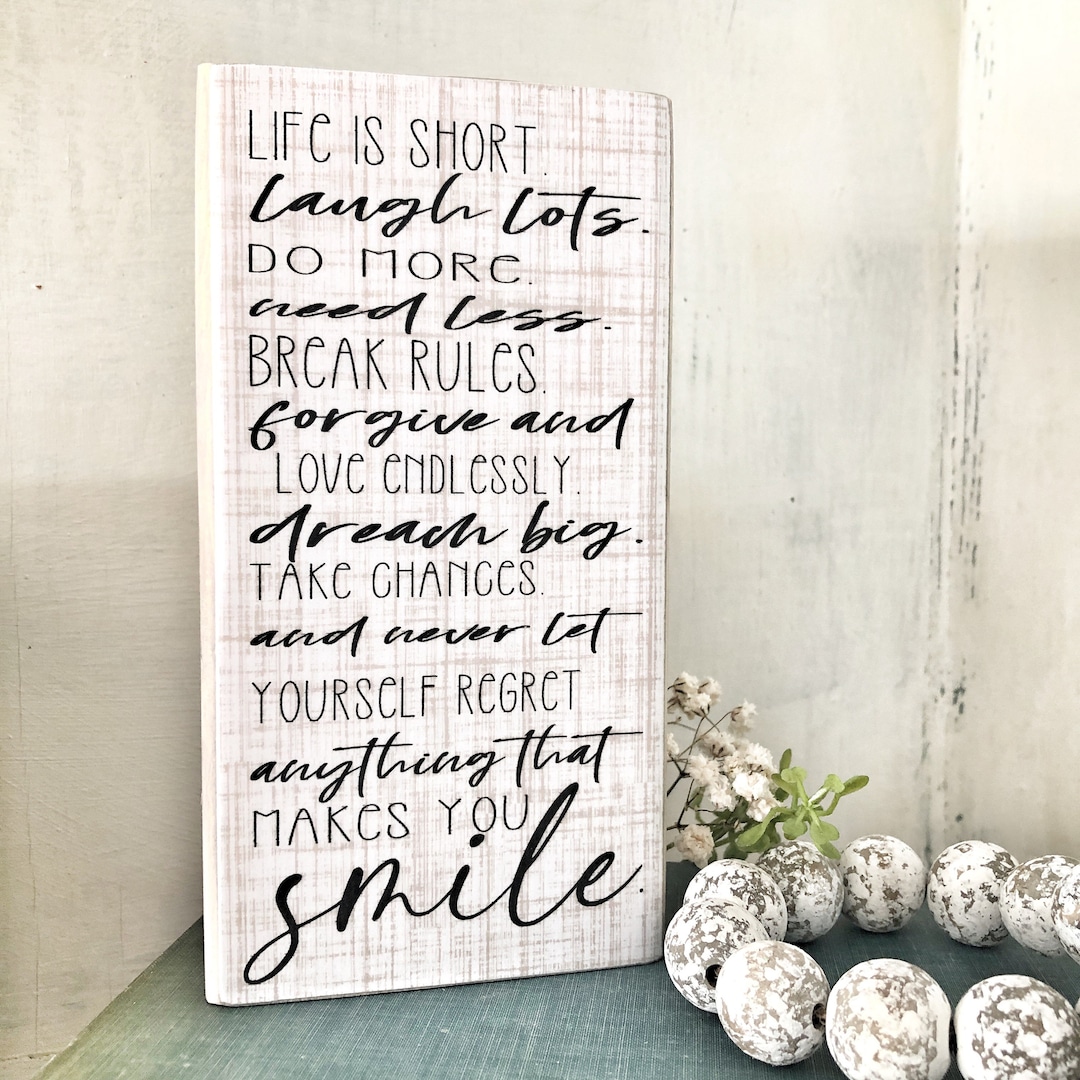 LIFe IS SHORT.
laugh lots.
DO MORe.
need less.
BREAK RULES.
forgive and
LOVE eNDLESSLY.
dream big.
TAKE CHANCES.
and never let
YOURSELF REGRET
anything that
MAKES YOU
smile.